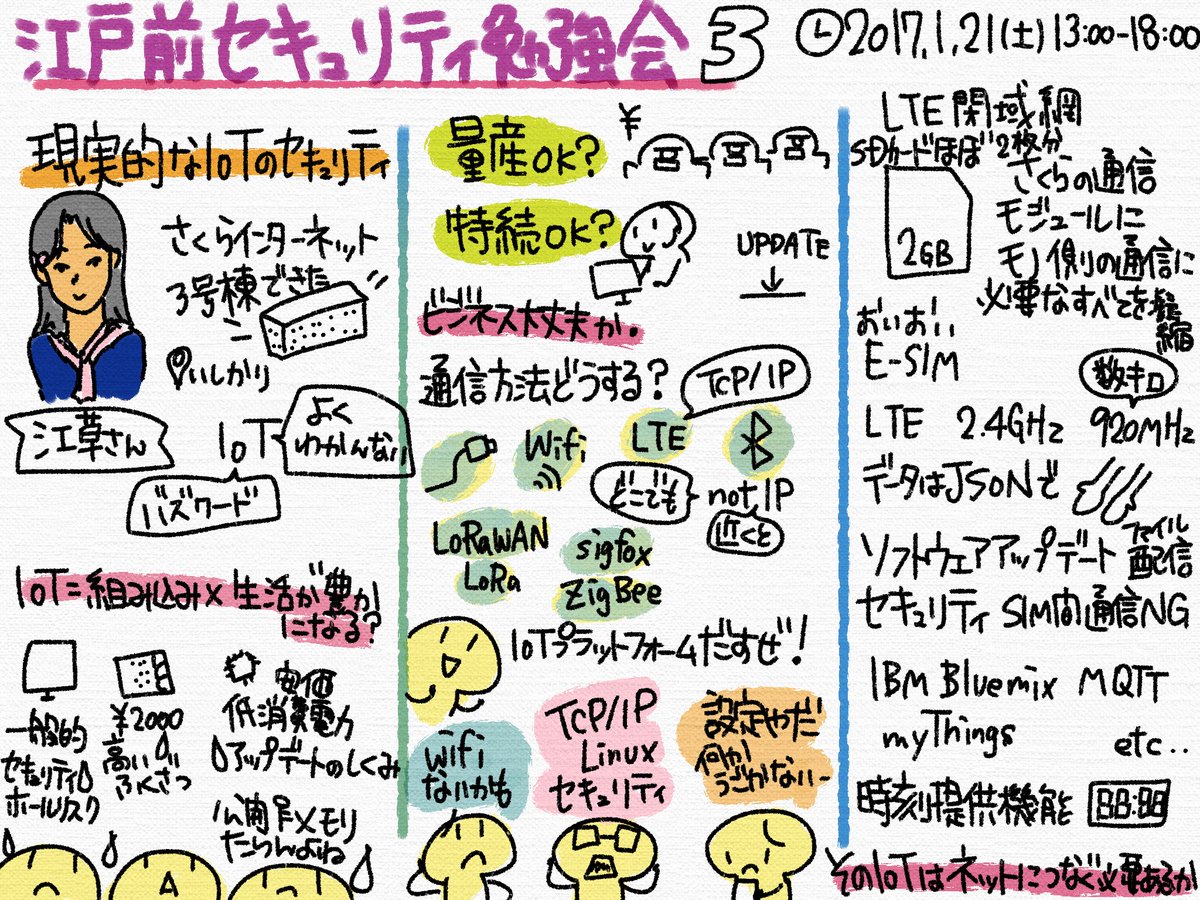 江戸前セキュリティ勉強会 3
2017.1.21(土)13:00-18:00
現実的なIoTのセキュリティ
さくらインターネット
3号棟できた
いしかり
江草さん
IoT
よく
わかんない
バズワード
IoT=組み込み×生活が豊か
になる?
一般的
セキュリティ
ホールリスク
¥2000
高い
ふくざつ
安価
低消費電力
アップデートのしくみ
メモリ
たらんよね
量産OK?
¥
持続OK?
UPDATE
ビジネス大丈夫か。
通信方法どうする?
TCP/IP
Wifi
LTE
どこでも
not IP
近くと
LoRaWAN
LoRa
sigfox
ZigBee
IoTプラットフォームだすぜ!
wifi
ないかも
TCP/IP
Linux
セキュリティ
設定やだ
何か
うごかない~
LTE閉域網
SDカードほぼ2枚分
2GB
さくらの通信
モジュールに
モノ側の通信に
必要なすべてを凝
縮
おいおい
E-SIM
数キロ
LTE 2.4GHz 920MHz
データはJSONで
ソフトウェアアップデート
ファイル
配信
セキュリティ SIM間通信NG
IBM Bluemix MQTT
myThings etc..
時刻提供機能
88:88
そのIoTはネットにつなぐ必要あるか